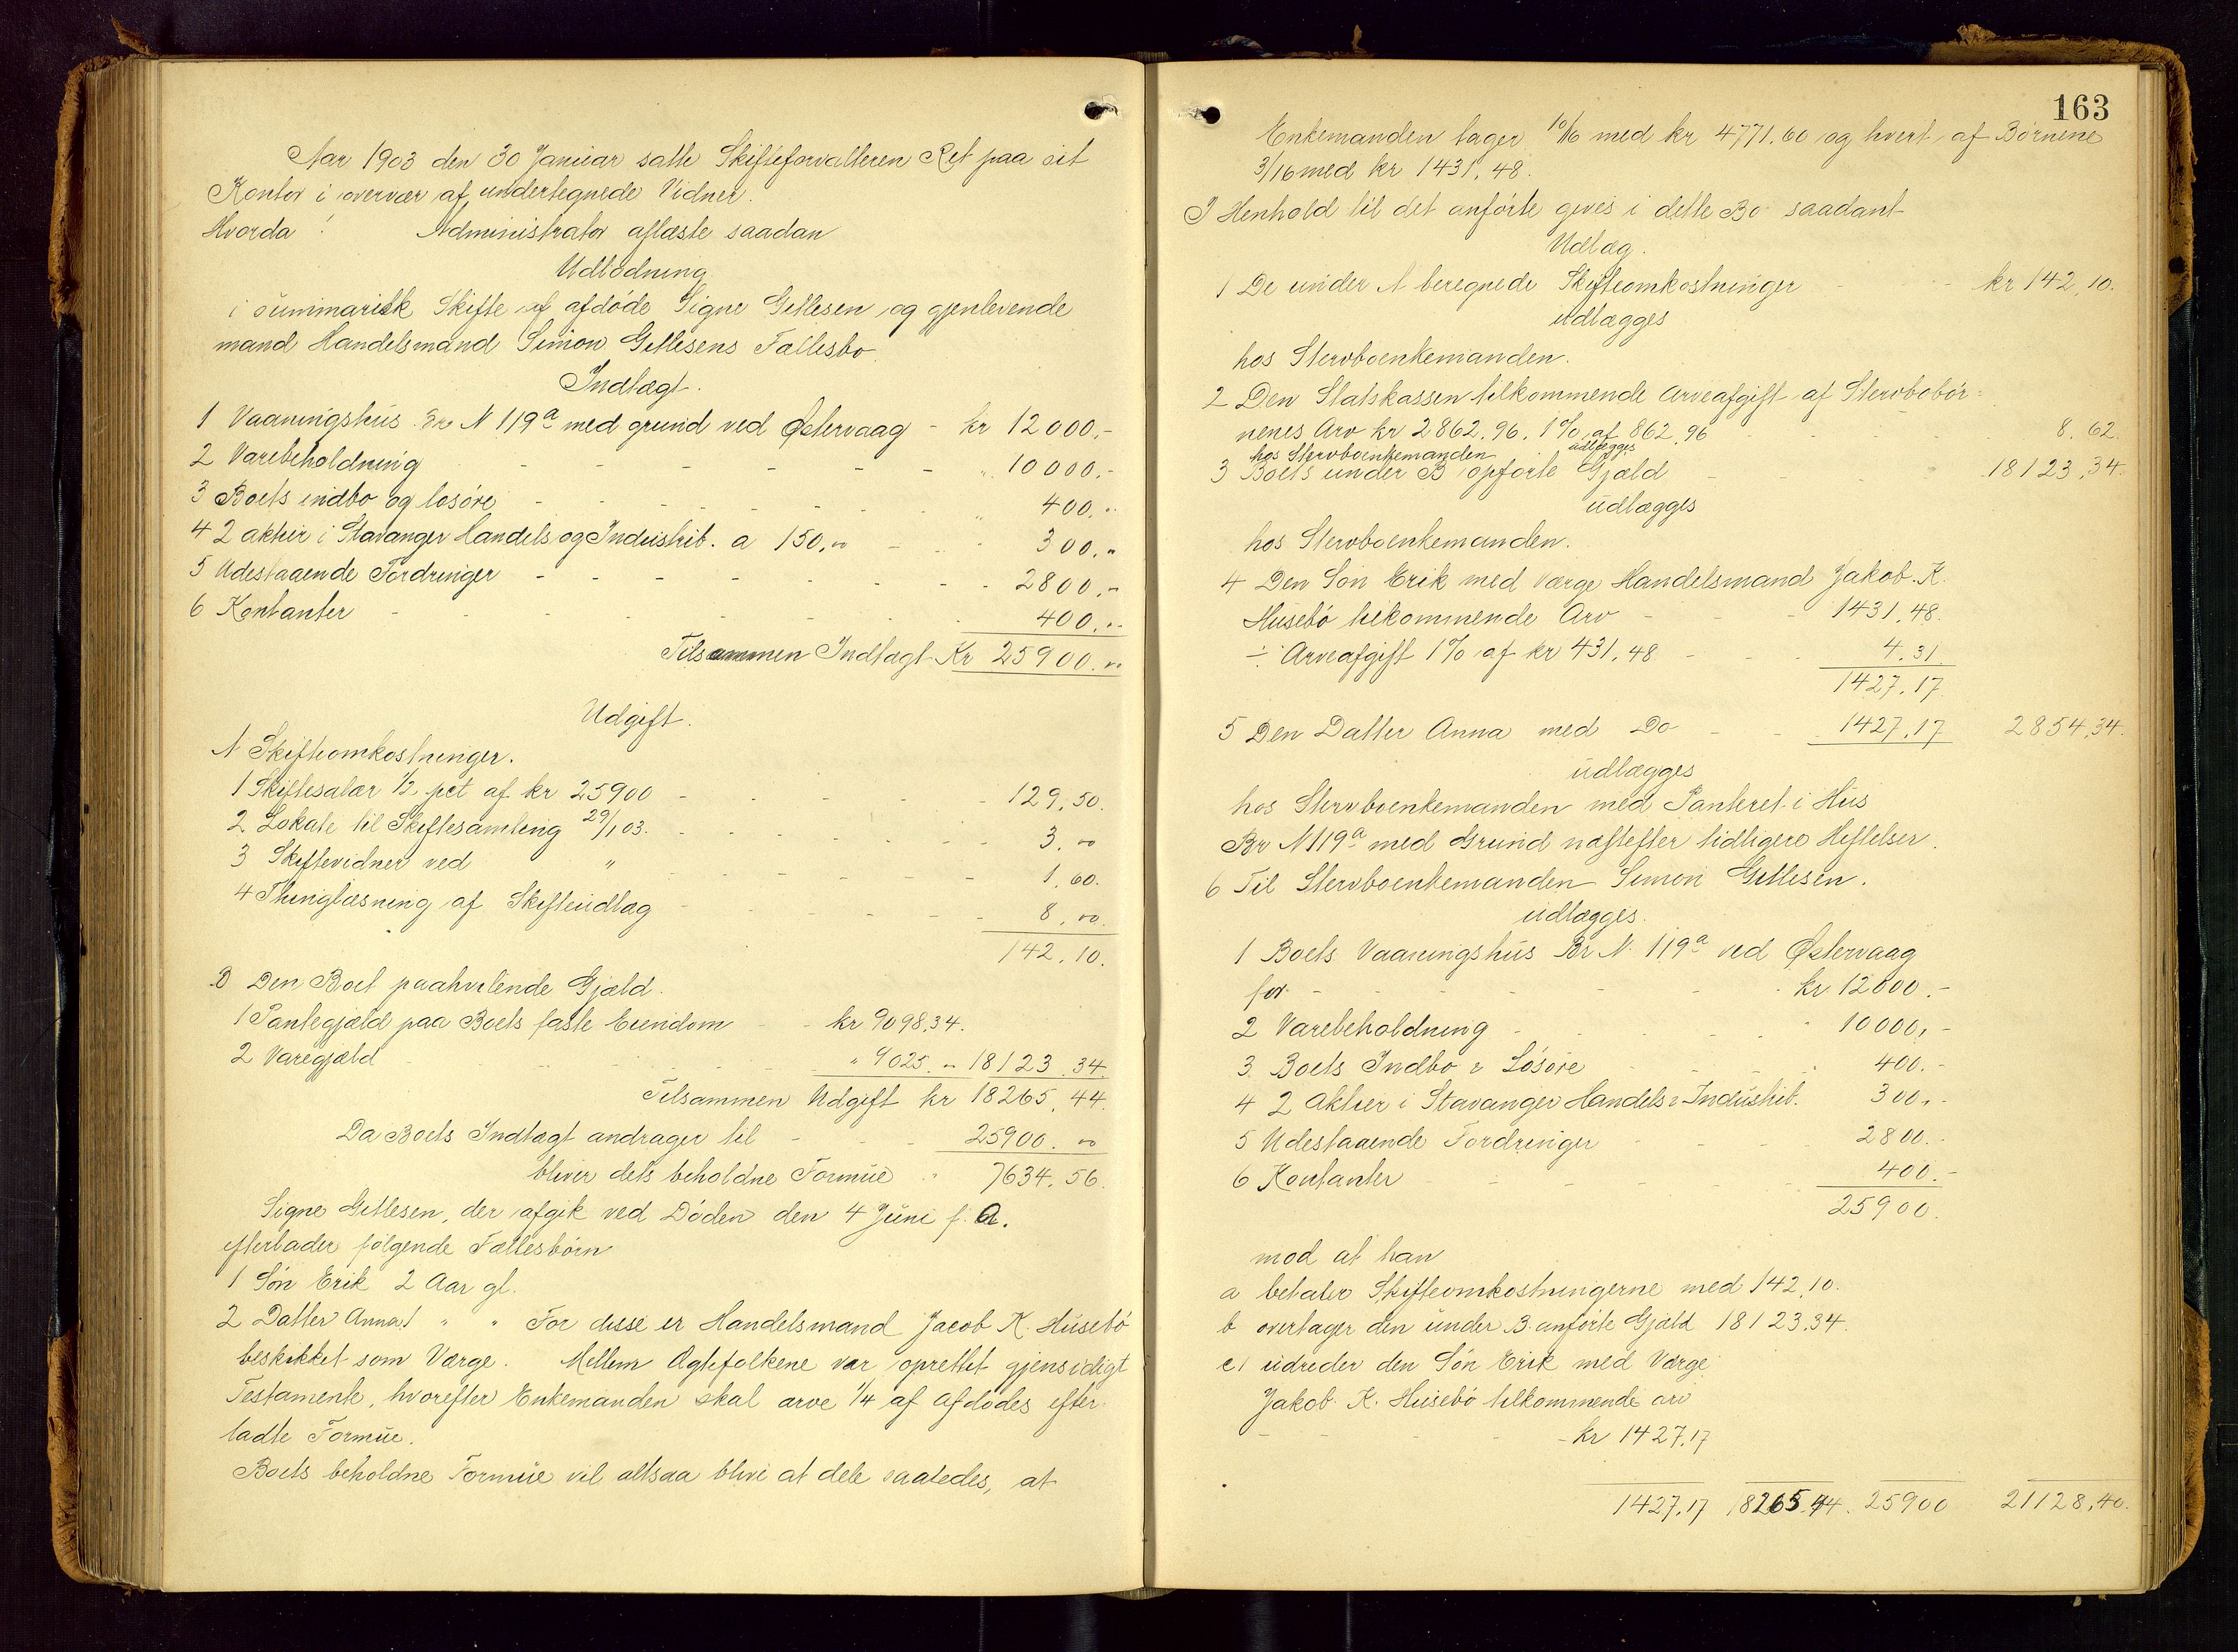 Aar 1903 den 30 Januar satte Skifteforvalteren Ret paa sit
Kontor i overvær af undertegnede Vidner.
Hvorda: Administrator aflæste saadan
Udlodning
i summarisk Skifte af afdøde Signe Gitlesen og gjenlevende
mand Handelsmand Simon Gitlesens Fællesbo.
Indtægt.
1 Vaaningshus Br N 119a med grund ved Østervaag - kr 12000.-
2 Varebeholdning - - - - - " 10000.-
3 Boets indbo og losøre - - - - - " 400."
4 2 aktier i Stavanger Handels og Industrib. a 150,00 - - 300."
5 Udestaaende Fordringer - - - - - 2800.-
6 Kontanter - - - - - 400.-
Tilsammen Indtægt Kr 25900.00
Udgift.
A Skifteomkostninger.
1 Skiftesalær 1/2 pct af kr 25900 - - - 129,50.
2 Lokale til Skiftesamling 29/1 03. - - - 3.00
3 Skiftevidner ved " - - - 1.60.
4 Thinglæsning af Skifteudlæg - - - 8.00.
142,10.
B Den Boet paahvilende Gjæld.
1 Pantegjæld paa Boets faste Eiendom - - kr 9098.34.
2 Varegjæld - - - " 9025.- 18123.34.
Tilsammen Udgift kr 18265,44.
Da Boets Indtægt andrager til - - 25900.00
bliver dets beholdne Formue " 7634.56.
Signe Gitlesen, der afgik ved Døden den 4 Juni f. A.
efterlader følgende Fællesbørn
1 Søn Erik 2 Aar gl.
2 Datter Anna 1 " " For disse er Handelsmand Jacob K. Husebø
beskikket som Værge. Mellem Ægtefolkene var oprettet gjensidigt
Testamente, hvorefter Enkemanden skal arve 1/4 af Afdødes efter-
ladte Formue.
Boets beholdne Formue vil altsaa blive at dele saaledes, at
163
Enkemanden tager 10/16 med kr 4771.60 og hvert af Børnene
3/16 med kr 1431,48.
I Henhold til det anførte gives i dette Bo saadant
Udlæg.
1 De under A beregnede Skifteomkostninger - - kr 142,10.
udlægges
hos Stervboenkemanden.
2 Den Statskassen tilkommende Arveafgift af Stervbobør=
nenes Arv kr 2862,96. 1% af 862,96 - - 8.62.
udlægges
hos Stervboenkemanden
3 Boets under B opførte Gjæld - - - 18123,34.
udlægges
hos Stervboenkemanden.
4 Den Søn Erik med Værge Handelsmand Jakob. K.
Husebø tilkommende Arv - - - 1431,48.
÷ Arveafgift 1% af kr 431,48 - - - 4.31.
1427,17.
5 Den Datter Anna med Do - - 1427,17 2854,34.
udlægges
hos Stervboenkemanden med Panteret i Hus
Br N 119a med Grund næstefter tidligere Heftelser.
6 Til Stervboenkemanden Simon Gitlesen.
udlægges.
1 Boets Vaaningshus Br N. 119a ved Østervaag
for - - - - kr. 12000.-
2 Varebeholdning - - - " 10000.-
3. Boets Indbo & Løsøre - - - 400.-
4 2 Aktier i Stavanger Handels & Industrib. 300.-
5 Udestaaende Fordringer - - - 2800.-
6 Kontanter - - - - 400.-
25900.
mod at han
a betaler Skifteomkostningerne med 142,10.
b overtager den under B. anførte Gjæld 18123.34.
c) udreder den Søn Erik med Værge
Jakob. K. Husebø tilkommende arv
- - - - kr 1427.17
1427.17 18265.44. 25900 21128,40.